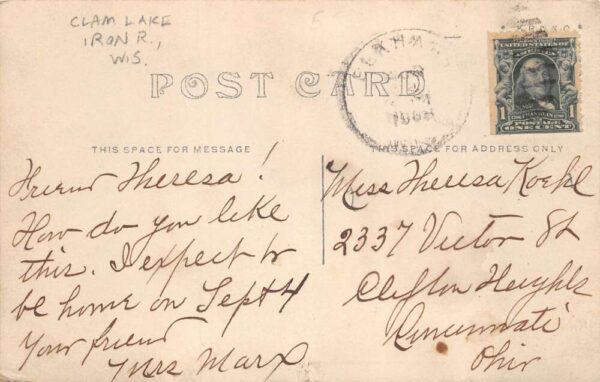 CLAM LAKE
IRON R.,
WIS.
POST CARD
UNITED STATES OF AMERICA
FRANKLIN
1 1
POSTAGE
ONE CENT
THIS SPACE FOR MESSAGE
THIS SPACE FOR ADDRESS ONLY
Friend Theresa!
How do you like
this. I expect to
be home on Sept 4
Your friend
Mrs Marx
Miss Theresa Koehl
2337 Victor St
Clifton Heights
Cincinnati
Ohio